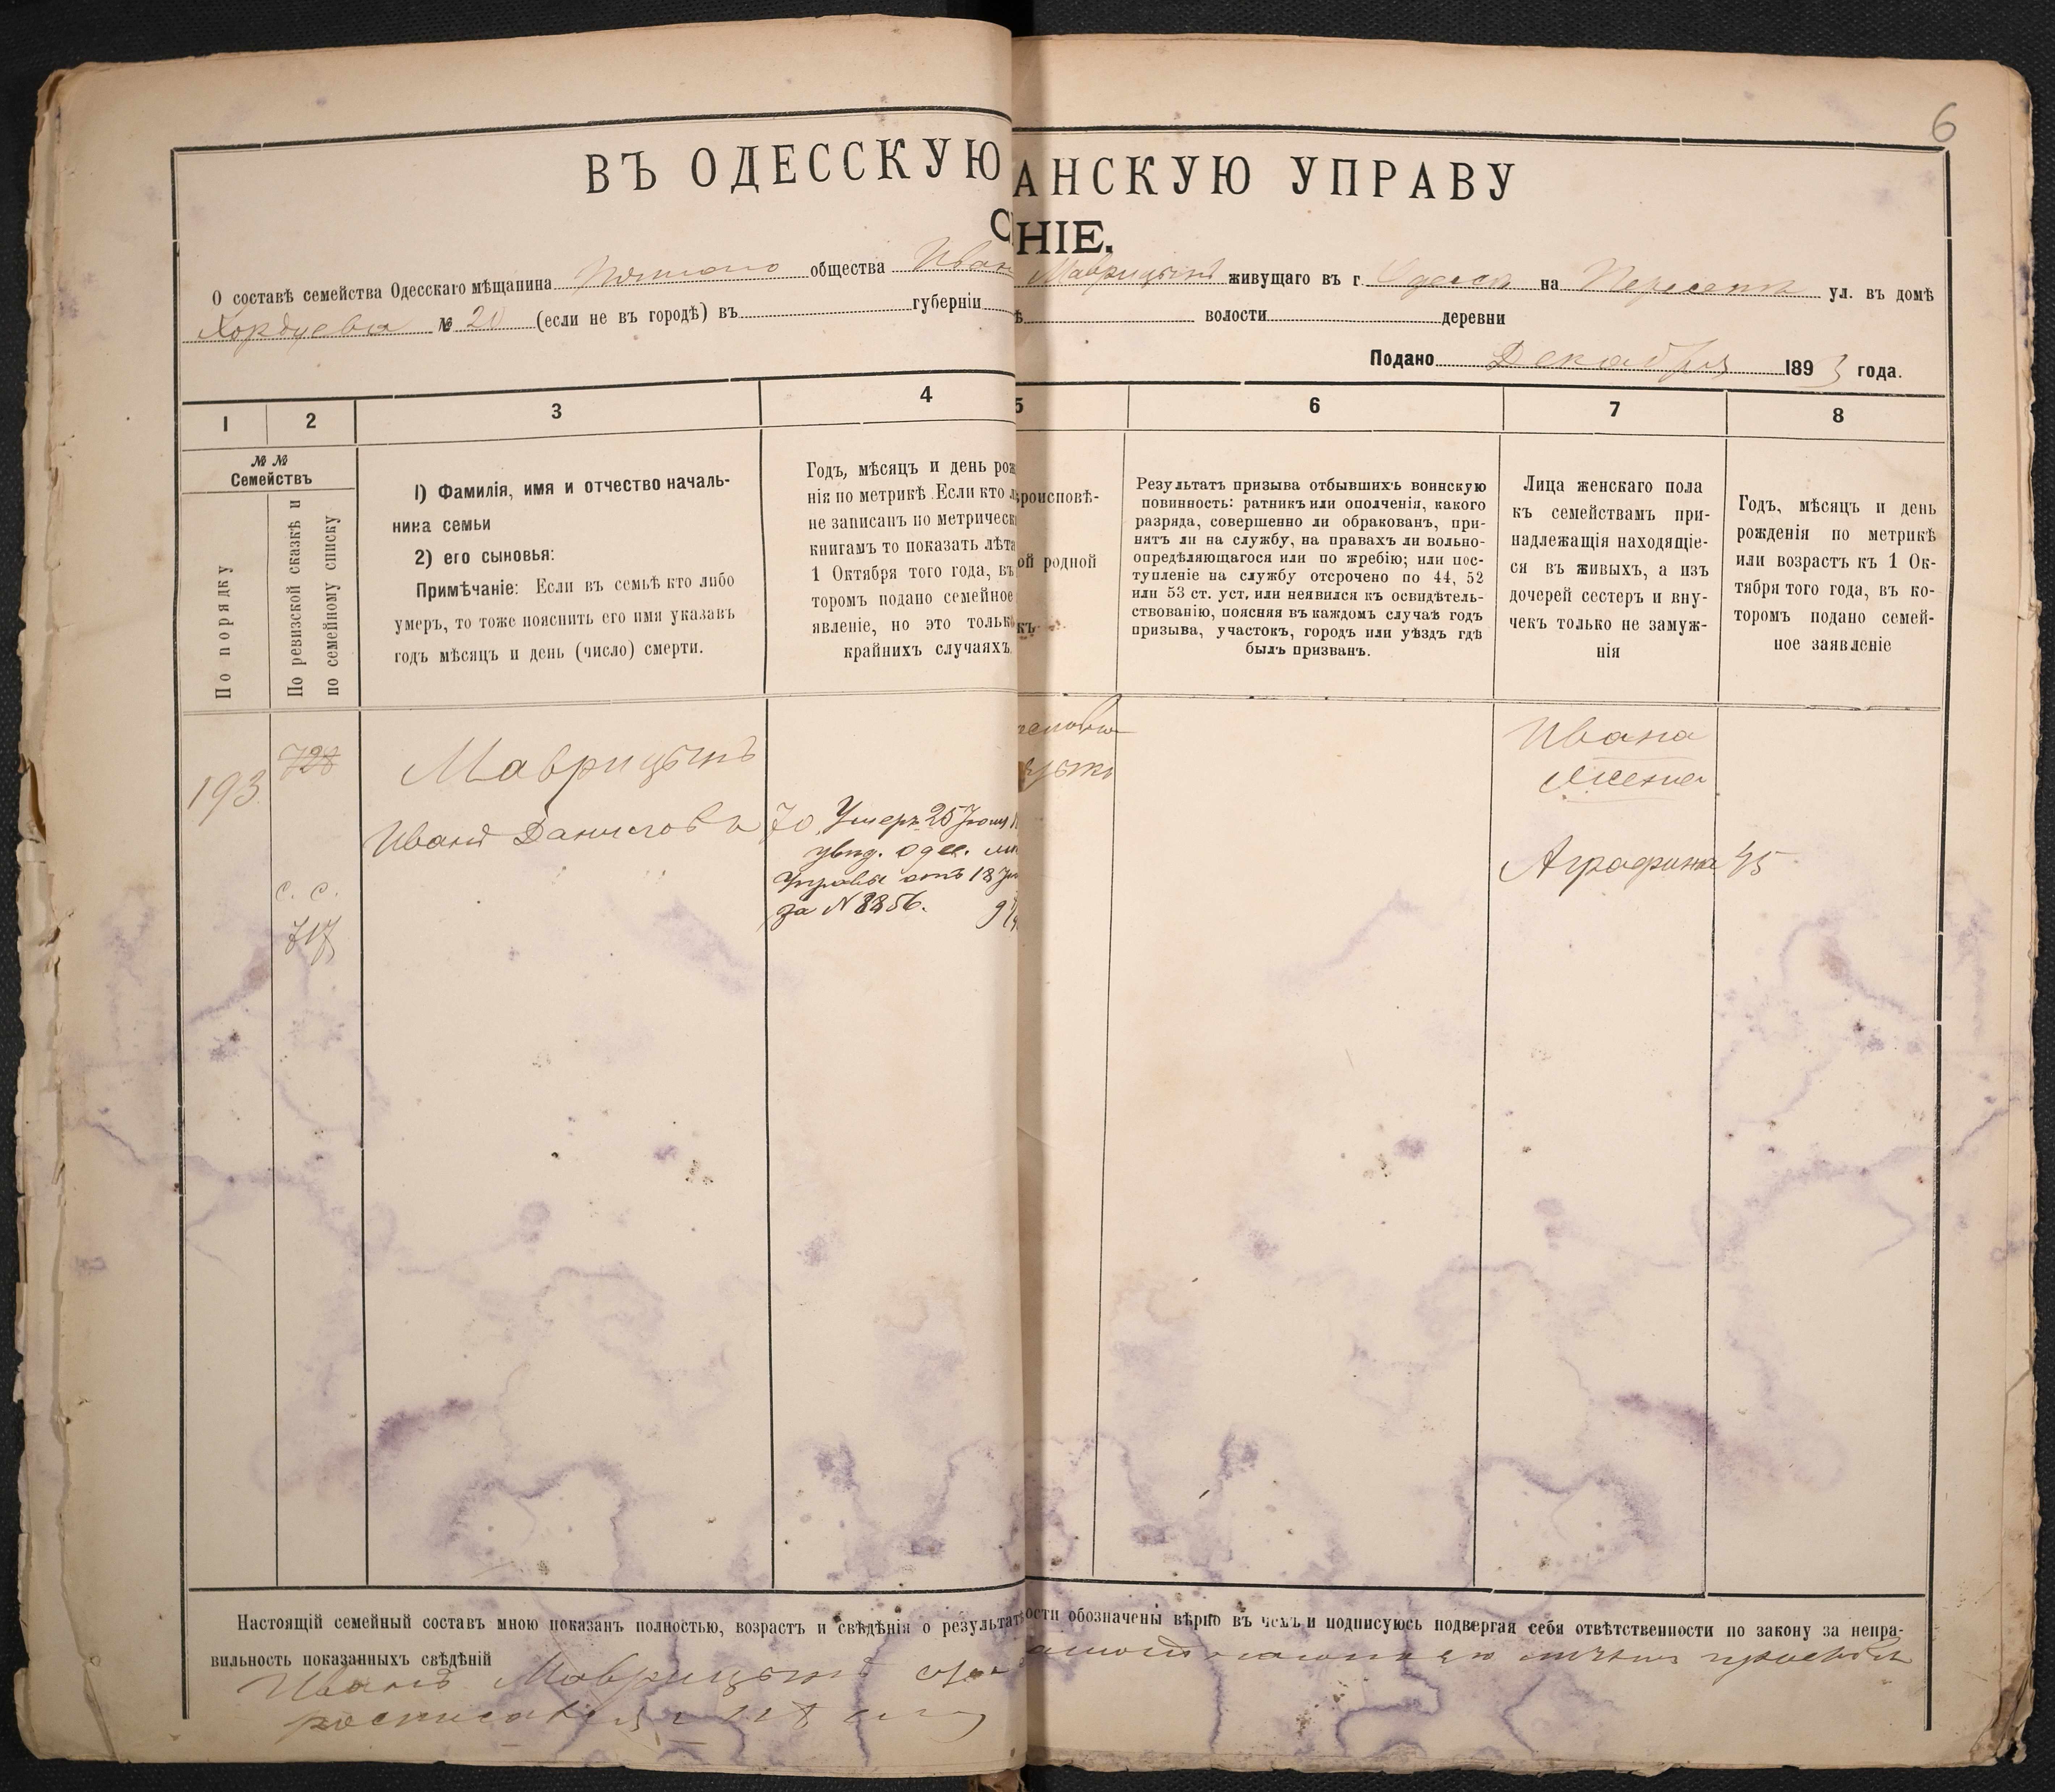 6
ВЪ ОДЕССКУЮ АНСКУЮ УПРАВУ
НІЕ.
О составѣ семейства Одесскаго мѣщанина общества Иван Маврицынъ живущаго въ г. Одессѣ на Пересыпи ул. въ домѣ
№ 20 (если не въ городѣ) въ губерніи волости деревни
Подано Декабря 1893 года.
1 2 3 4 5 6 7 8
№№
Семействъ
По порядку
По ревизской сказкѣ и
по семейному списку
1) Фамилія, имя и отчество началь-
ника семьи
2) его сыновья:
Примѣчаніе: Если въ семьѣ кто либо
умеръ, то тоже пояснить его имя указавъ
годъ мѣсяцъ и день (число) смерти.
Годъ, мѣсяцъ и день рож
нія по метрикѣ. Если кто л
не записанъ по метрическ
книгамъ то показать лѣта
1 Октября того года, въ
торомъ подано семейное
явленіе, но это только
крайнихъ случаяхъ
роисповѣ-
ой родной
къ
Результатъ призыва отбывшихъ воинскую
повинность: ратникъ или ополченія, какого
разряда, совершенно ли обракованъ, при-
нятъ ли на службу, на правахъ ли вольно-
опредѣляющагося или по жребію; или пос-
тупленіе на службу отсрочено по 44, 52
или 53 ст. уст. или неявился къ освидѣтель-
ствованію, поясняя въ каждомъ случаѣ годъ
призыва, участокъ, городъ или уѣздъ гдѣ
былъ призванъ.
Лица женскаго пола
къ семействамъ при-
надлежащія находящіе-
ся въ живыхъ, а изъ
дочерей сестеръ и вну-
чекъ только не замуж-
нія
Годъ, мѣсяцъ и день
рожденія по метрикѣ
или возрастъ къ 1 Ок-
тября того года, въ ко-
торомъ подано семей-
ное заявленіе
193
728
с. с.
717
Маврицынъ
Иванъ Даниловъ
70 Умеръ 25
увѣд. одес.
Управы отъ 18
за № 8856.
Ивана
Жена
Аграфина 45
Настоящій семейный составъ мною показанъ полностью, возрастъ и свѣдѣнія о результатѣ ости обозначены вѣрно въ чемъ и подписуюсь подвергая себя отвѣтственности по закону за непра-
вильность показанныхъ свѣдѣній
Иванъ Маврицынъ